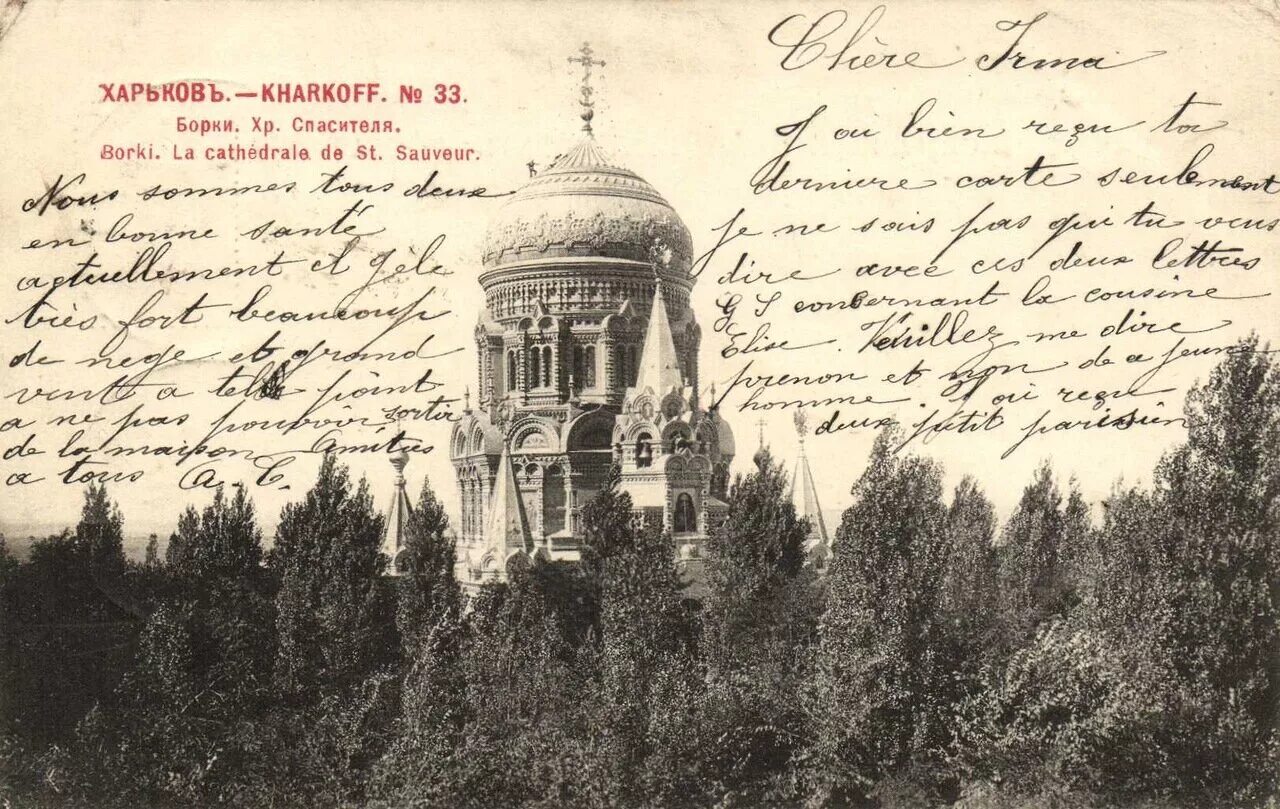 ХАРЬКОВЪ.—KHARKOFF. № 33.
Борки. Хр. Спасителя.
Borki. La cathédrale de St. Sauveur.
Chère Irma
J ai bien reçu ta
derniere carte seulement
je ne sais pas qui tu veus
dire avec ces deux lettres
G S concernant la cousine
Elise. Veuillez me dire
prenon et non de a jeune
homme. J ai reçu
deux petit parisien
Nous sommes tous deux
en bonne santé
actuellement et gèle
très fort beaucoup
de nege et grand
vent a tel point
a ne pas pouvoir sortir
de la maison Amitiés
a tous A. C.